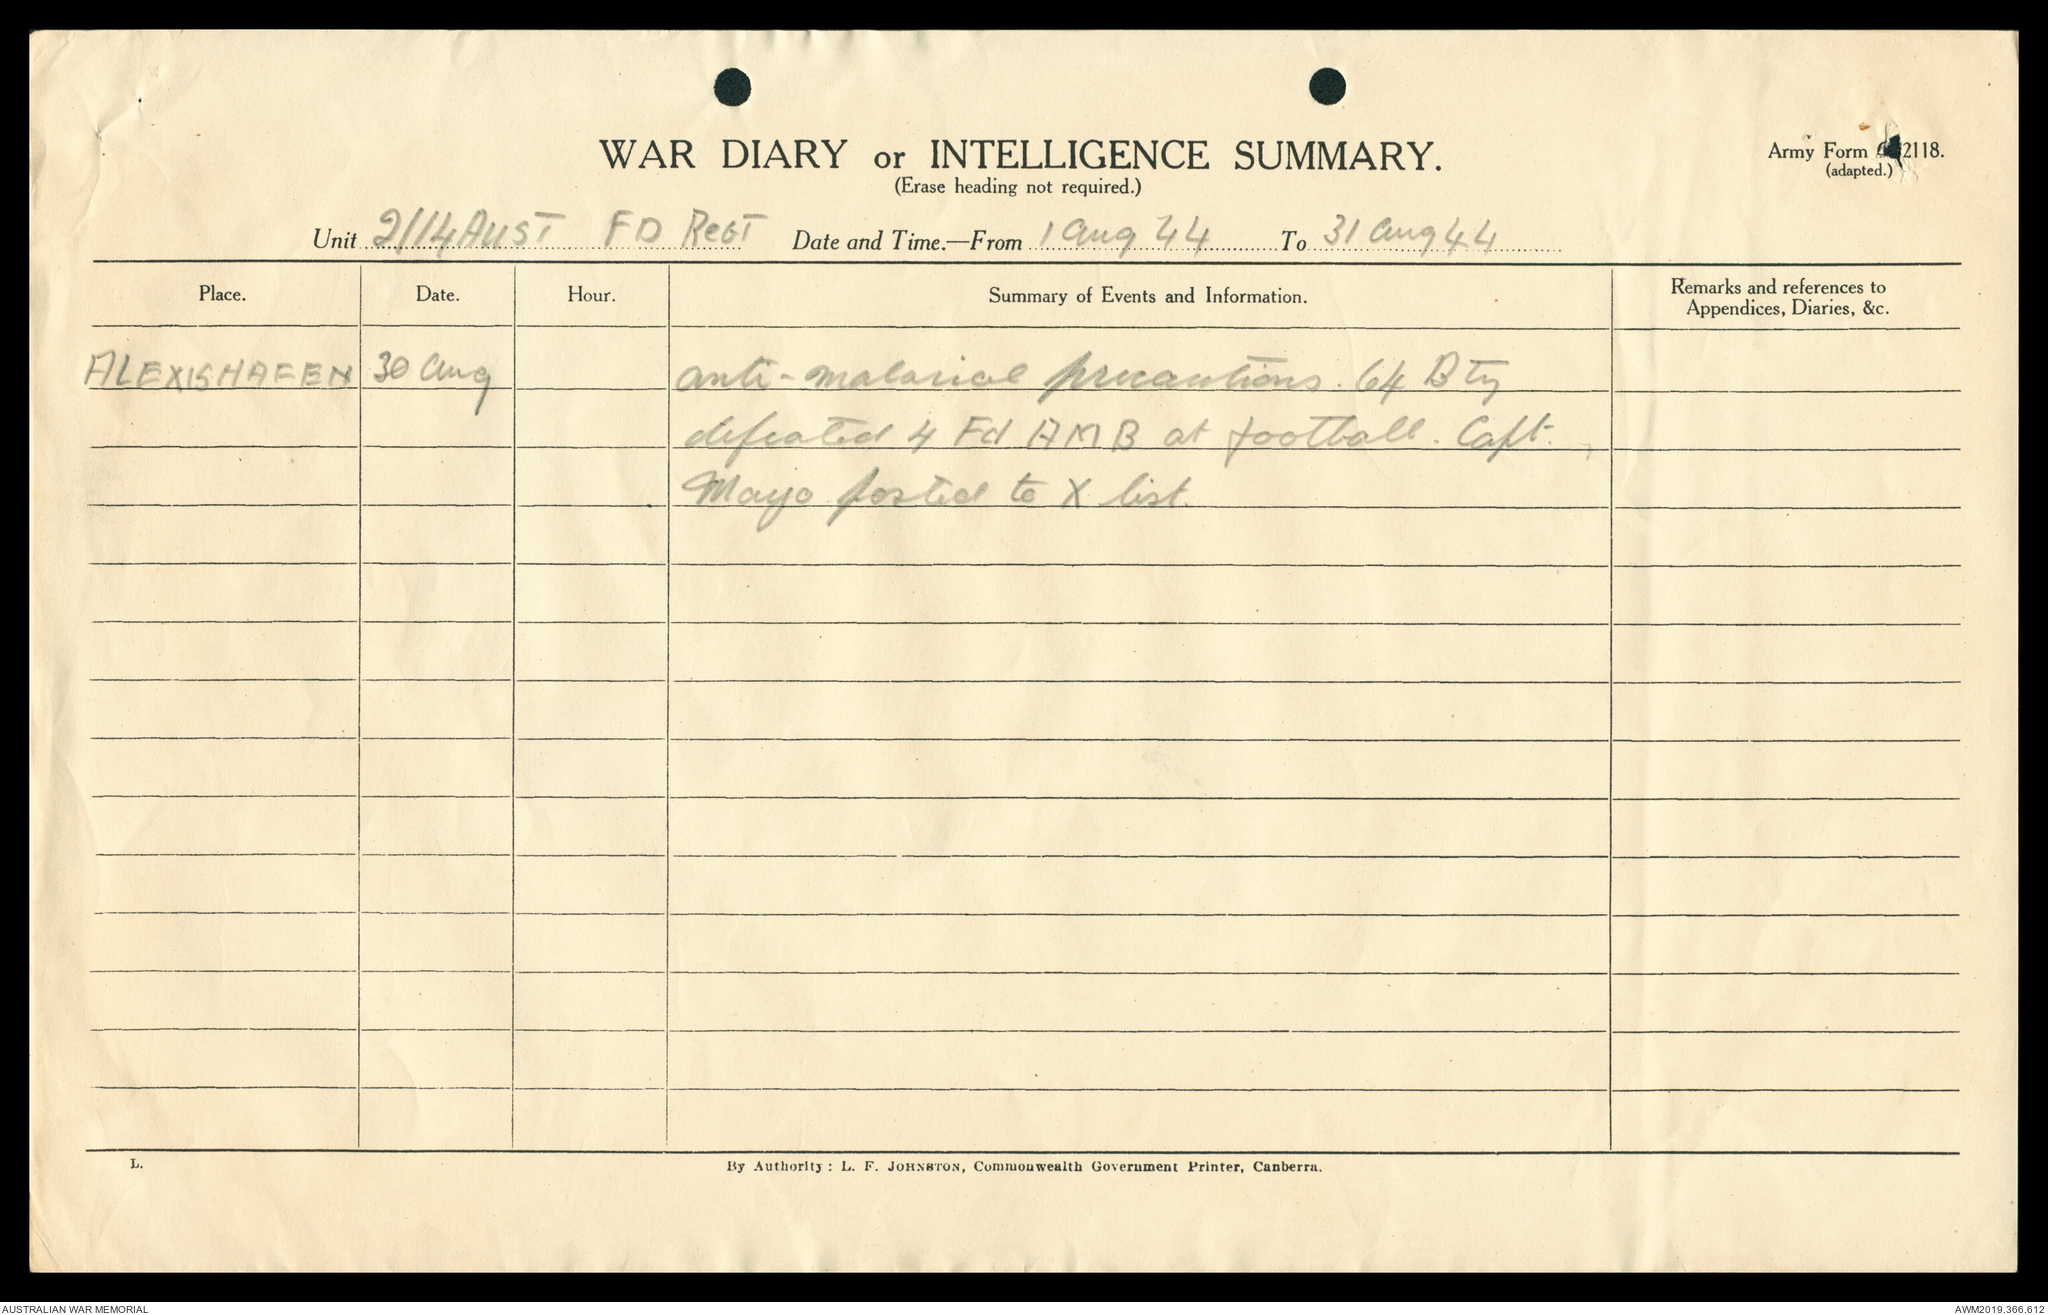 WAR DIARY or INTELLIGENCE SUMMARY.
(Erase heading not required.)
Army Form 2118.
(adapted.)
Unit 2/14 AUST FD REGT Date and Time.—From 1 Aug 44 To 31 Aug 44
Place. Date. Hour. Summary of Events and Information. Remarks and references to Appendices, Diaries, &c.
ALEXISHAFEN 30 Aug anti-malarial precautions. 64 Bty
defeated 4 Fd AMB at football. Capt.
Mayo posted to X list.
L.
By Authority: L. F. JOHNSTON, Commonwealth Government Printer, Canberra.
AUSTRALIAN WAR MEMORIAL
AWM2019.366.612